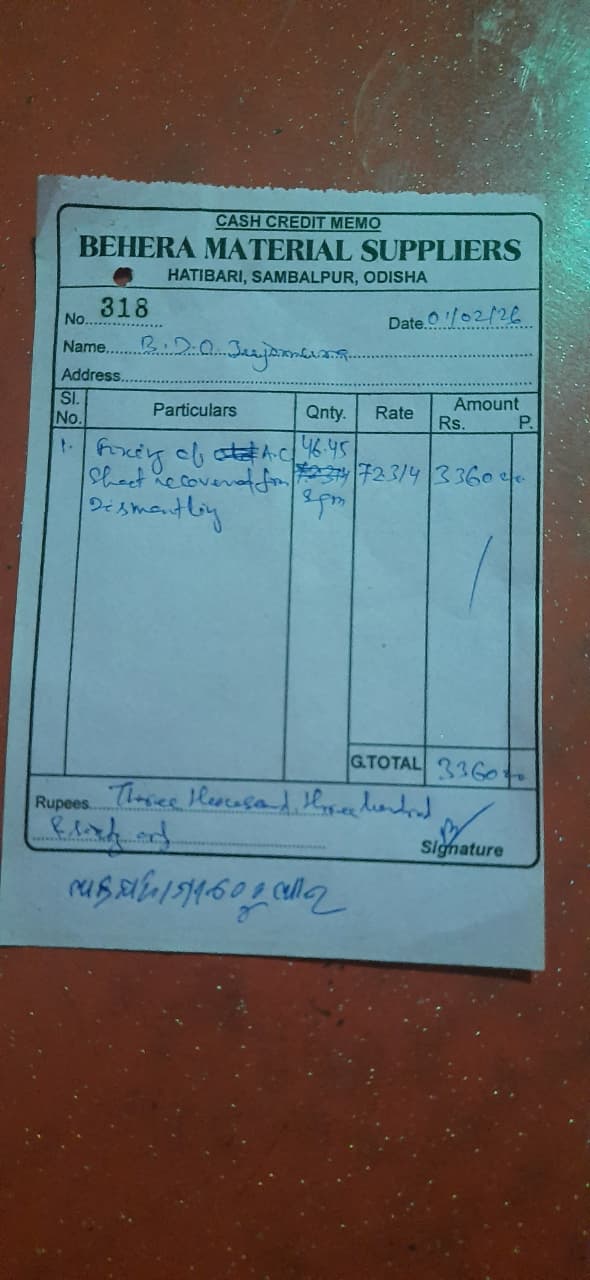 CASH CREDIT MEMO
BEHERA MATERIAL SUPPLIERS
HATIBARI, SAMBALPUR, ODISHA
No. 318
Date 01/02/26
Name B.D.O
Address
Sl. No. Particulars Qnty. Rate Amount Rs. P.
1. Fixing of A.C 46.45
Sheet recovered from 72314 3360
Dismantling
G.TOTAL 3360
Rupees Three thousand, three hundred
& sixty only
Signature